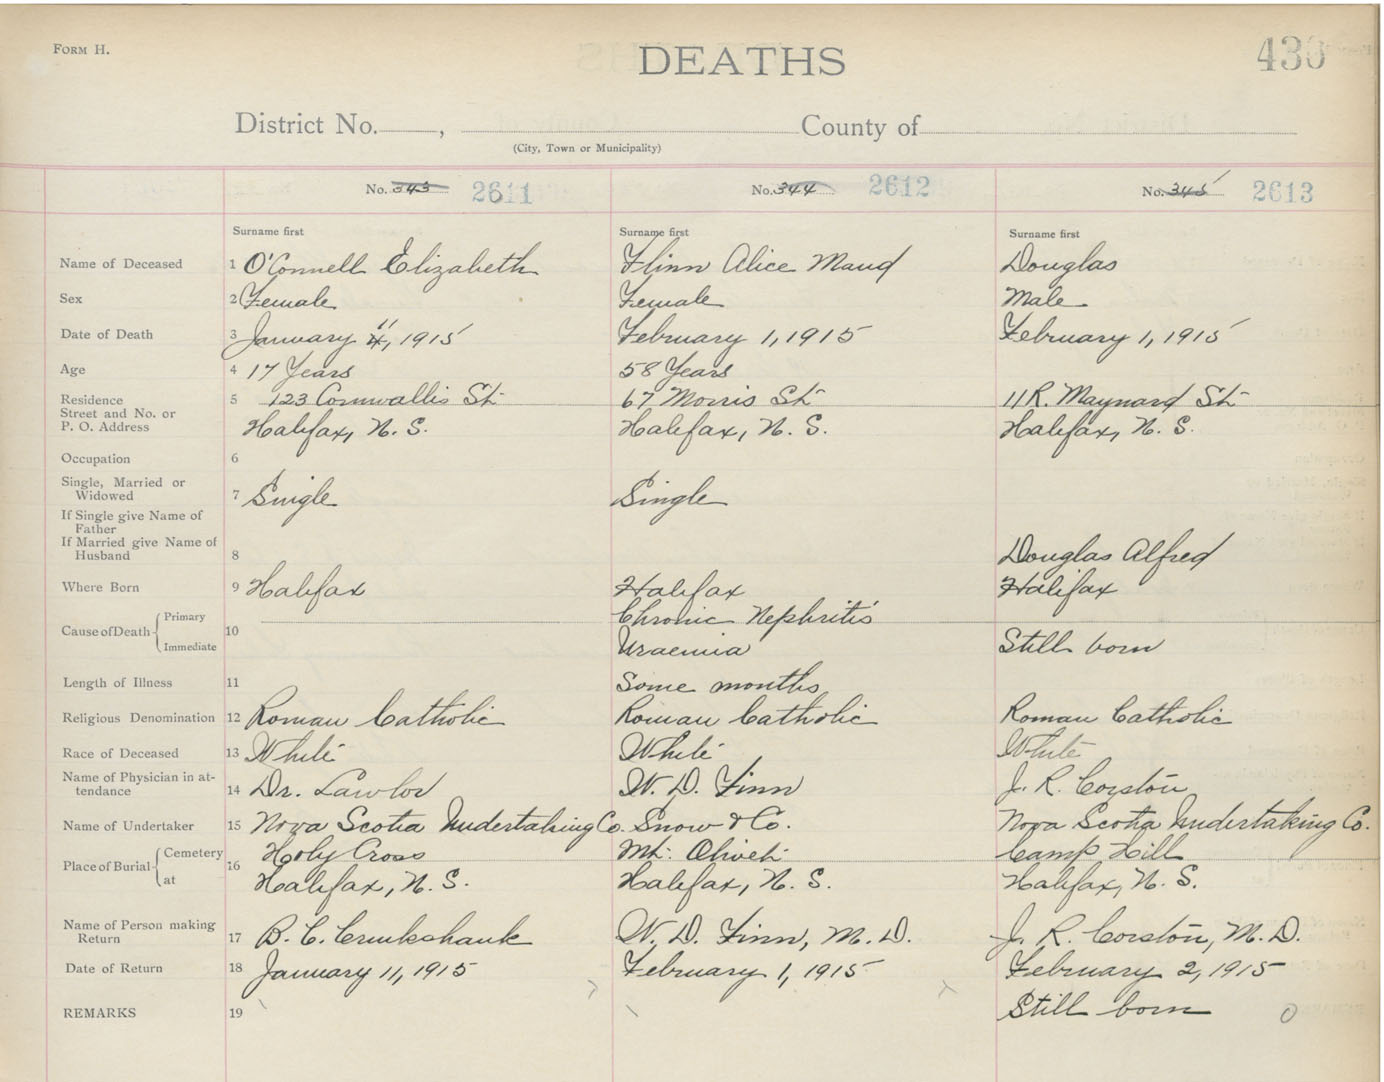 FORM H.
DEATHS
430
District No. , County of
(City, Town or Municipality)
No. 343 2611 No. 344 2612 No. 345 2613
Surname first Surname first Surname first
Name of Deceased 1 O'Connell Elizabeth Flinn Alice Maud Douglas
Sex 2 Female Female Male
Date of Death 3 January 4, 11, 1915 February 1, 1915 February 1, 1915
Age 4 17 Years 58 Years
Residence 5 123 Cornwallis St. 67 Morris St. 11R. Maynard St.
Street and No. or
P. O. Address Halifax, N. S. Halifax, N. S. Halifax, N. S.
Occupation 6
Single, Married or
Widowed 7 Single Single
If Single give Name of
Father
If Married give Name of
Husband 8 Douglas Alfred
Where Born 9 Halifax Halifax Halifax
Cause of Death Primary 10 Chronic Nephritis
Immediate Uraemia Still born
Length of Illness 11 Some months
Religious Denomination 12 Roman Catholic Roman Catholic Roman Catholic
Race of Deceased 13 White White White
Name of Physician in at-
tendance 14 Dr. Lawlor W. D. Finn J. R. Corston
Name of Undertaker 15 Nova Scotia Undertaking Co. Snow & Co. Nova Scotia Undertaking Co.
Place of Burial Cemetery 16 Holy Cross Mt. Olivet Camp Hill
at Halifax, N. S. Halifax, N. S. Halifax, N. S.
Name of Person making
Return 17 B. C. Cruikshank W. D. Finn, M. D. J. R. Corston, M. D.
Date of Return 18 January 11, 1915 February 1, 1915 February 2, 1915
REMARKS 19 Still born